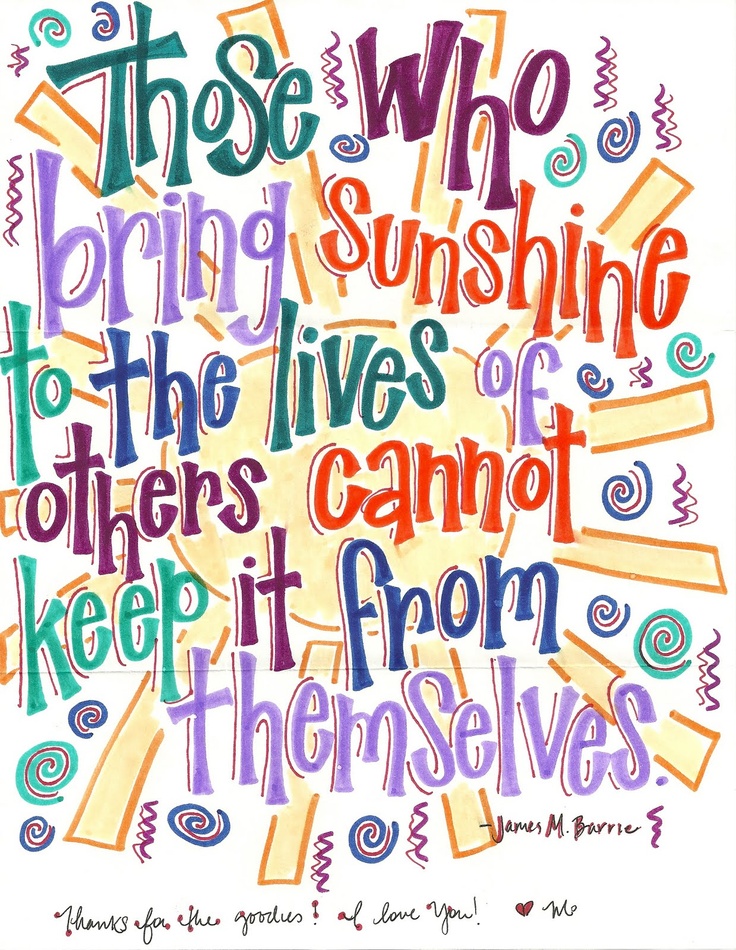 Those Who
bring sunshine
to the lives of
others cannot
keep it from
themselves.
-James M. Barrie
Thanks for the goodies! I love You! ♥ Me